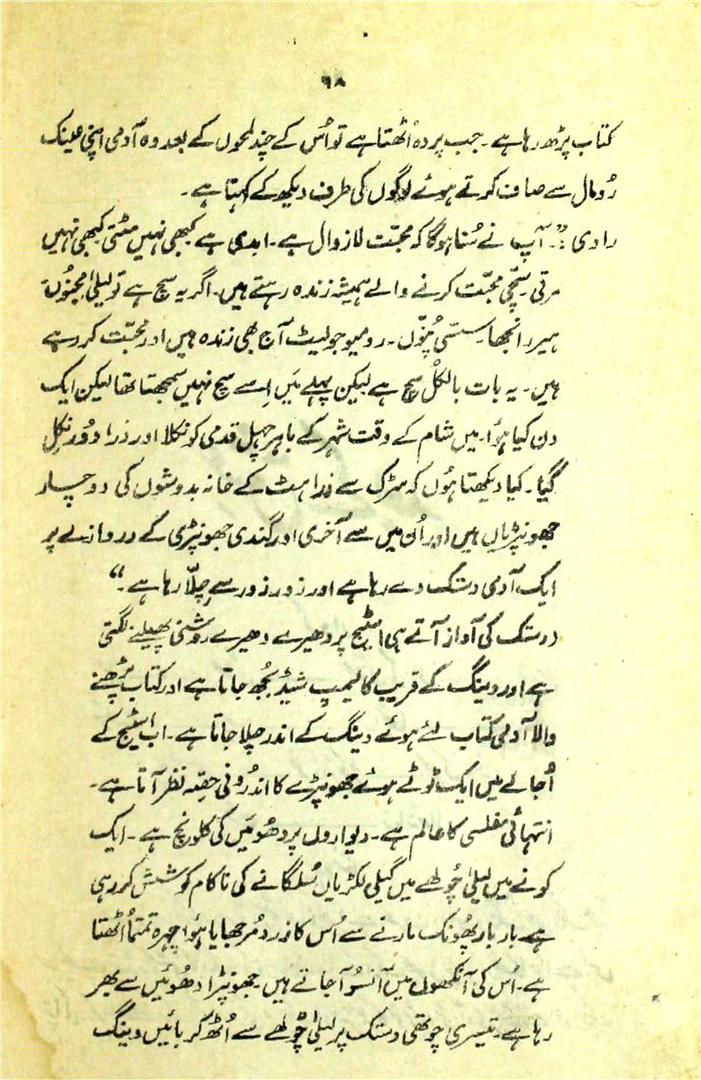 ۹۸
کتاب پڑھ رہا ہے۔ جب پردہ اُٹھتا ہے تو اُس کے چند لمحوں کے بعد وہ آدمی اپنی عینک
رُومال سے صاف کرتے ہوئے لوگوں کی طرف دیکھ کے کہتا ہے۔
راوی :" آپ نے سُنا ہوگا کہ محبّت لازوال ہے۔ ابدی ہے کبھی نہیں مٹتی کبھی نہیں
مرتی۔ سچّی محبّت کرنے والے ہمیشہ زندہ رہتے ہیں۔ اگر یہ سچ ہے تو لیلیٰ مجنُوں۔
ہیر رانجھا۔ سسّی پُنّوں۔ رومیو جولیٹ آج بھی زندہ ہیں اور محبّت کر رہے
ہیں۔ یہ بات بالکل سچ ہے لیکن پہلے میَں اِسے سچ نہیں سمجھتا تھا لیکن ایک
دن کیا ہوُا۔ میں شام کے وقت شہر کے باہر چہل قدمی کو نکلا اور ذرا دوُر نکل
گیا۔ کیا دیکھتا ہوُں کہ سڑک سے ذرا ہٹ کے خانہ بدوشوں کی دو چار
جھونپڑیاں ہیں اور اُن میں سے آخری اور گندی جھونپڑی کے دروازے پر
ایک آدمی دستک دے رہا ہے اور زور زور سے چِلاّ رہا ہے۔"
دستک کی آواز آتے ہی اسٹیج پر دھیرے دھیرے روشنی پھیلنے لگتی
ہے اور وِنگ کے قریب کا لیمپ شیڈ بُجھ جاتا ہے اور کتاب پڑھنے
والا آدمی کتاب لئے ہوئے وِنگ کے اندر چلا جاتا ہے۔ اب اسٹیج کے
اُجالے میں ایک ٹوٹے ہوئے جھونپڑے کا اندرُونی حِصّہ نظر آتا ہے۔
انتہائی مفلسی کا عالم ہے۔ دیواروں پر دھوُئیں کی کلونچ ہے۔ ایک
کونے میں لیلیٰ چُولھے میں گیلی لکڑیاں سُلگانے کی ناکام کوشش کر رہی
ہے بار بار پھُونک مارنے سے اُس کا زرد مُرجھایا ہوُا چہرہ تمتما اُٹھتا
ہے۔ اُس کی آنکھوں میں آنسُو آجاتے ہیں۔ جھونپڑا دھُوئیں سے بھر
رہا ہے۔ تیسری چوتھی دستک پر لیلیٰ چُولھے سے اُٹھ کر بائیں وِنگ